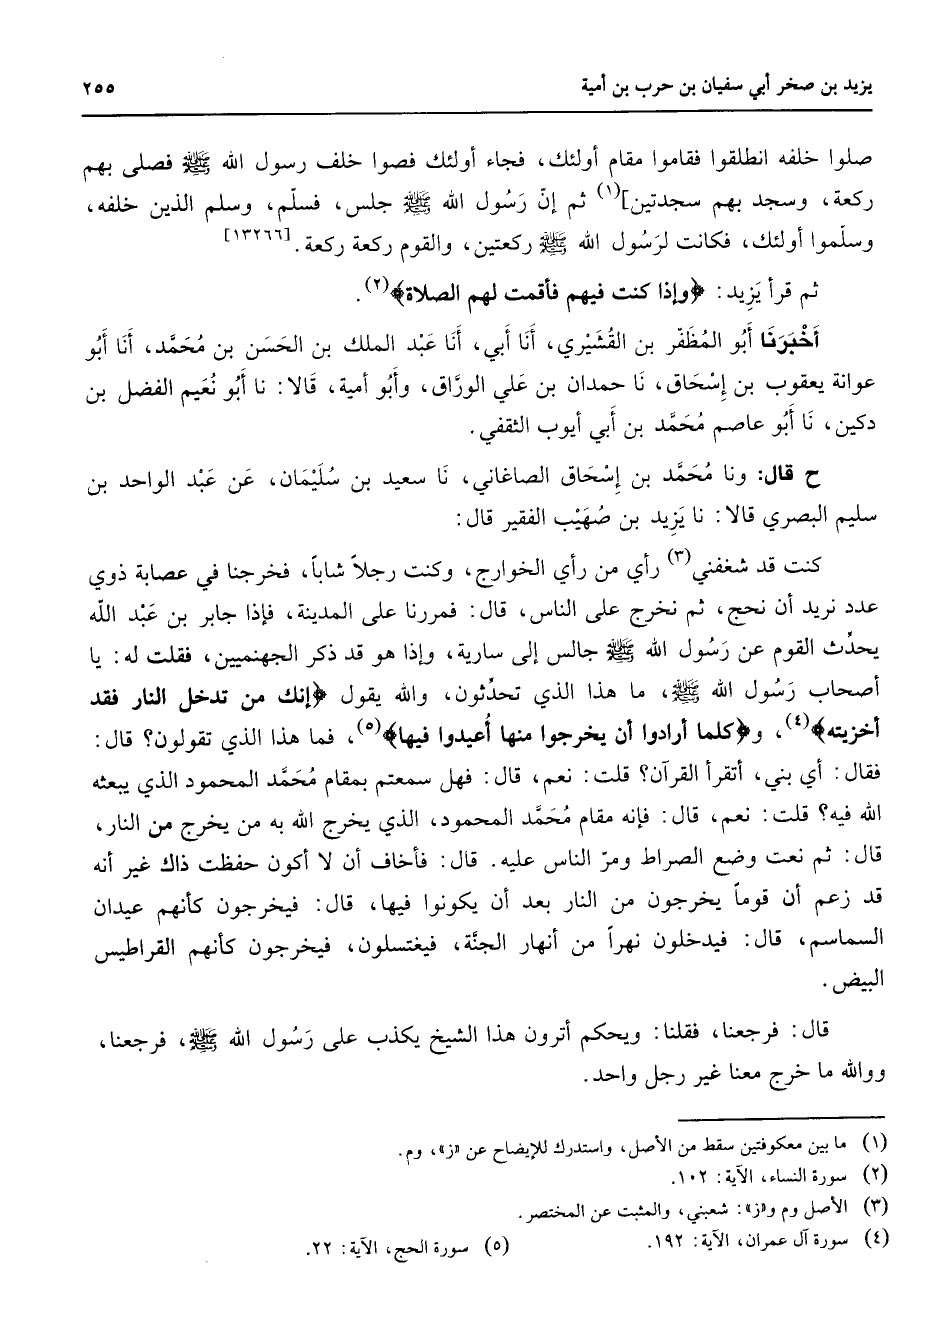 يزيد بن صخر أبي سفيان بن حرب بن أمية ٢٥٥
صلوا خلفه انطلقوا فقاموا مقام أولئك، فجاء أولئك فصوا خلف رسول الله ﷺ فصلى بهم
ركعة، وسجد بهم سجدتين](١) ثم إنّ رَسُول الله ﷺ جلس، فسلّم، وسلم الذين خلفه،
وسلّموا أولئك، فكانت لرَسُول الله ﷺ ركعتين، والقوم ركعة ركعة.[١٣٢٦٦]
ثم قرأ يَزِيد: ﴿وإذا كنت فيهم فأقمت لهم الصلاة﴾(٢).
أَخْبَرَنَا أَبُو المُظَفّر بن القُشَيْرِي، أَنَا أبي، أَنَا عَبْد الملك بن الحَسَن بن مُحَمَّد، أَنَا أَبُو
عوانة يعقوب بن إِسْحَاق، نَا حمدان بن عَلي الورَّاق، وأَبُو أمية، قَالا: نا أَبُو نُعَيم الفضل بن
دكين، نَا أَبُو عاصم مُحَمَّد بن أَبي أيوب الثقفي.
ح قال: ونا مُحَمَّد بن إِسْحَاق الصاغاني، نَا سعيد بن سُلَيْمَان، عَن عَبْد الواحد بن
سليم البصري قالا: نا يَزِيد بن صُهَيْب الفقير قال:
كنت قد شغفني(٣) رأي من رأي الخوارج، وكنت رجلاً شاباً، فخرجنا في عصابة ذوي
عدد نريد أن نحج، ثم نخرج على الناس، قال: فمررنا على المدينة، فإذا جابر بن عَبْد اللّه
يحدِّث القوم عن رَسُول الله ﷺ جالس إلى سارية، وإذا هو قد ذكر الجهنميين، فقلت له: يا
أصحاب رَسُول الله ﷺ، ما هذا الذي تحدِّثون، والله يقول ﴿إنك من تدخل النار فقد
أخزيته﴾(٤)، و﴿كلما أرادوا أن يخرجوا منها أُعيدوا فيها﴾(٥)، فما هذا الذي تقولون؟ قال:
فقال: أي بني، أتقرأ القرآن؟ قلت: نعم، قال: فهل سمعتم بمقام مُحَمَّد المحمود الذي يبعثه
الله فيه؟ قلت: نعم، قال: فإنه مقام مُحَمَّد المحمود، الذي يخرج الله به من يخرج من النار،
قال: ثم نعت وضع الصراط ومرّ الناس عليه. قال: فأخاف أن لا أكون حفظت ذاك غير أنه
قد زعم أن قوماً يخرجون من النار بعد أن يكونوا فيها، قال: فيخرجون كأنهم عيدان
السماسم، قال: فيدخلون نهراً من أنهار الجنَّة، فيغتسلون، فيخرجون كأنهم القراطيس
البيض.
قال: فرجعنا، فقلنا: ويحكم أترون هذا الشيخ يكذب على رَسُول الله ﷺ، فرجعنا،
ووالله ما خرج معنا غير رجل واحد.
(١) ما بين معكوفتين سقط من الأصل، واستدرك للإيضاح عن «ز»، وم.
(٢) سورة النساء، الآية: ١٠٢.
(٣) الأصل وم و«ز»: شعبني، والمثبت عن المختصر.
(٤) سورة آل عمران، الآية: ١٩٢. (٥) سورة الحج، الآية: ٢٢.